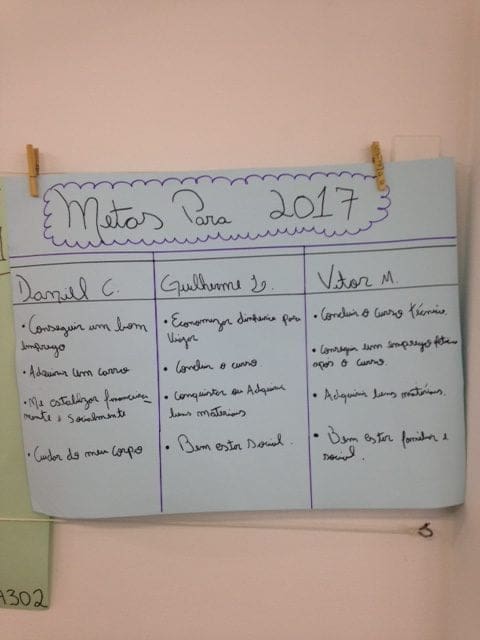 Metas Para 2017
Daniel C.
• Conseguir um bom
emprego
• Adquirir um carro
• Me estabilizar financeira
mente e socialmente
• Cuidar do meu corpo
Guilherme L.
• Economizar dinheiro para
Viajar
• Concluir o curso.
• Conquistar ou Adquirir
bens materiais
• Bem estar social.
Vitor M.
• Concluir o curso técnico.
• Conseguir um emprego
após o curso.
• Adquirir bens materiais.
• Bem estar familiar e
social.
A302